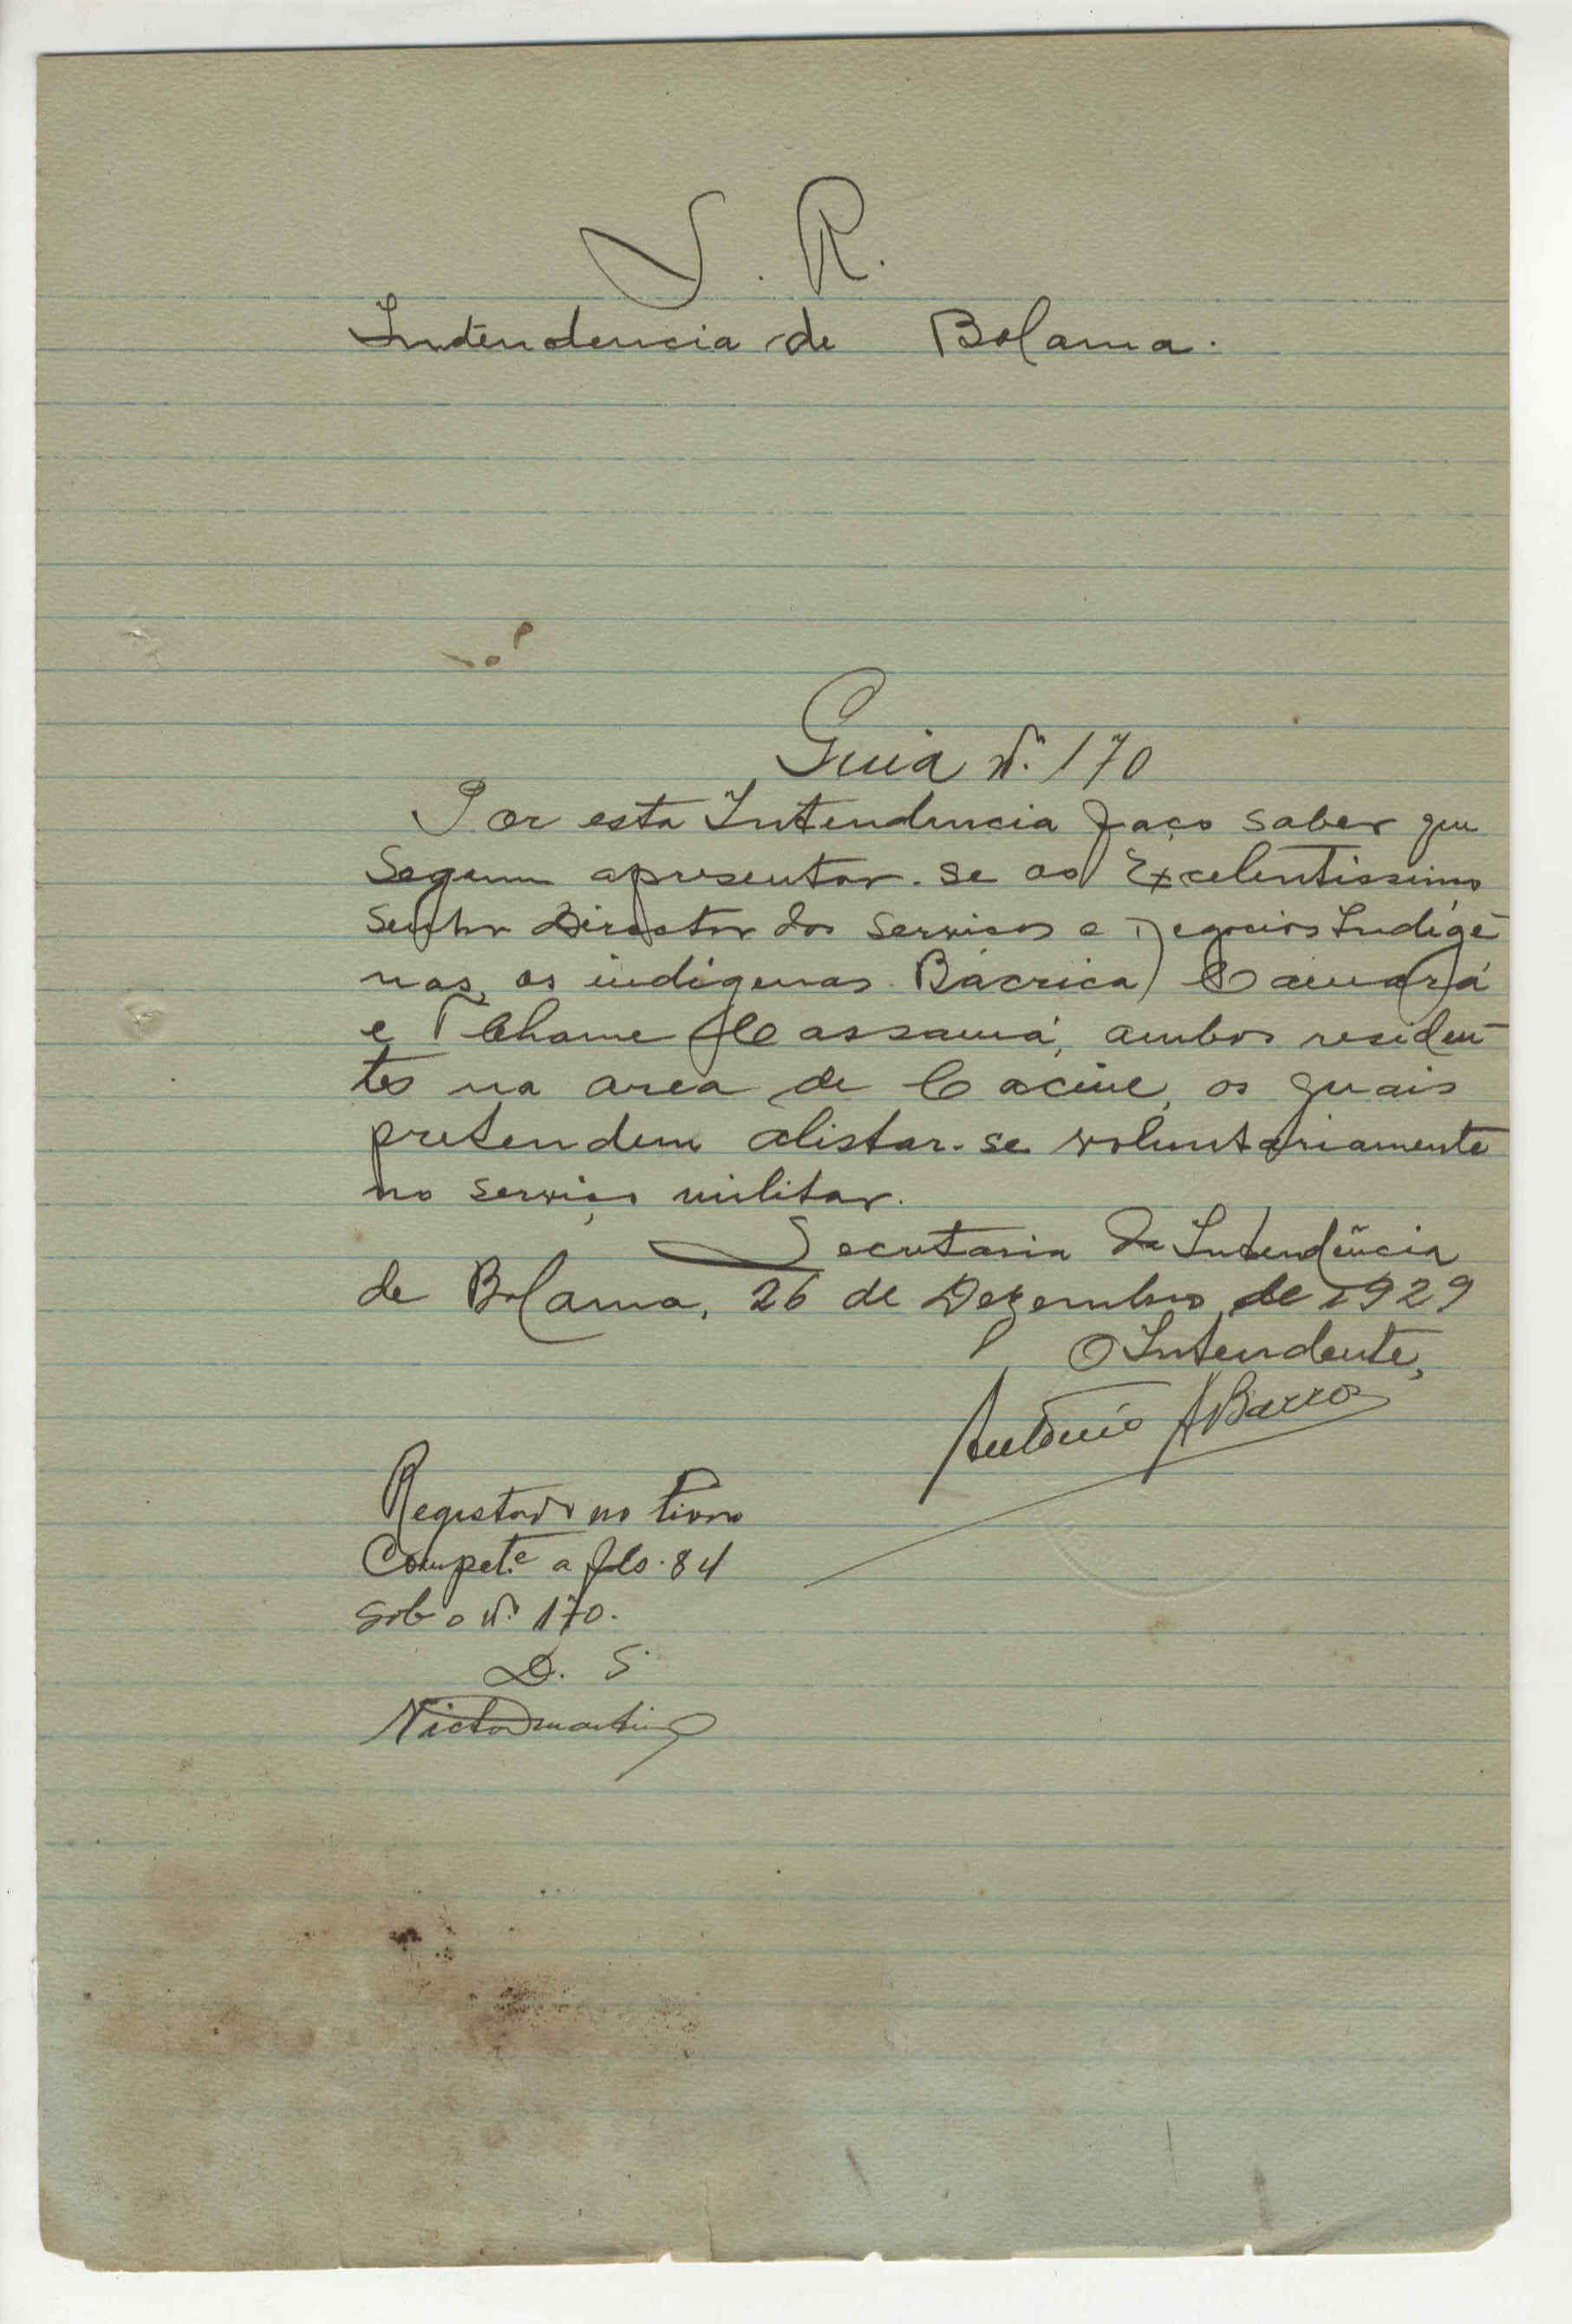 S. R.
Intendencia de Bolama.
Guia Nº 170
Por esta Intendencia faço saber que
seguem apresentar-se ao Excelentissimo
Senhor Director dos Serviços e Negocios Indigé-
nas, os indigenas Bacrica Camará
e Tchame Cassamá, ambos residen-
tes na area de Cacine, os quais
pretendem alistar-se voluntariamente
no serviço militar.
Secretaria da Intendência
de Bolama, 26 de Dezembro de 1929
O Intendente,
António A Barros
Registado no livro
Compet.e a fls. 84
sob o Nº 170.
D. S.
Victor Martins